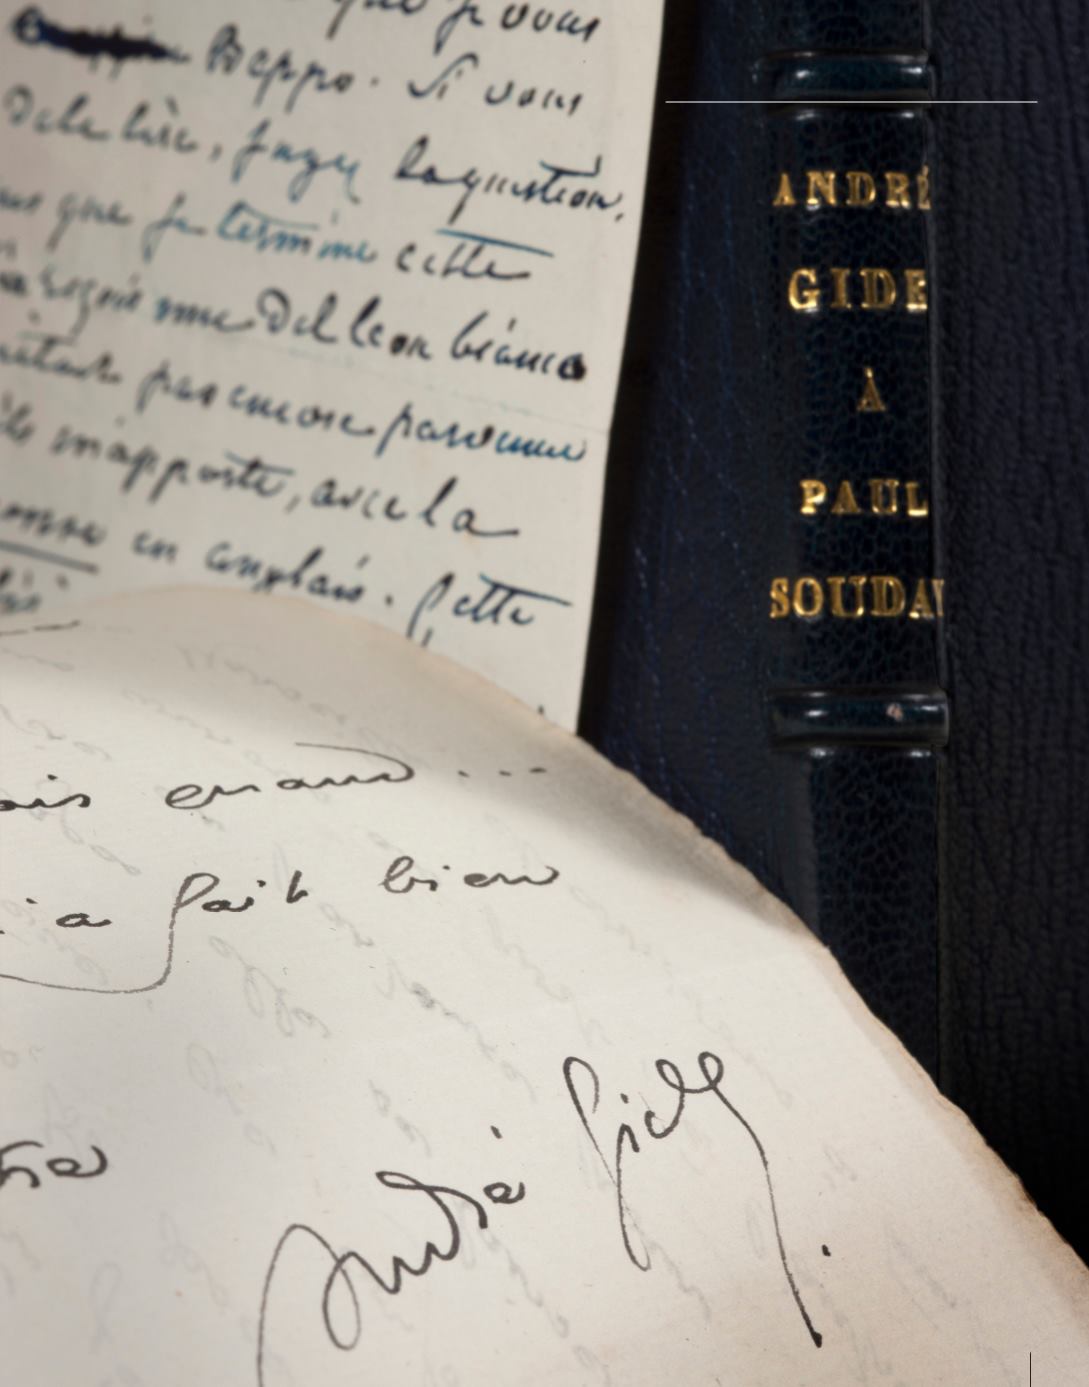 que je vous
Beppo. Si vous
de le lire, jugez la question.
que je termine cette
Del leon bianco
pas encore parvenue
m'apporte, avec la
en anglais. Cette
ANDRÉ
GIDE
À
PAUL
SOUDAY
quand ...
a fait bien
André Gide.